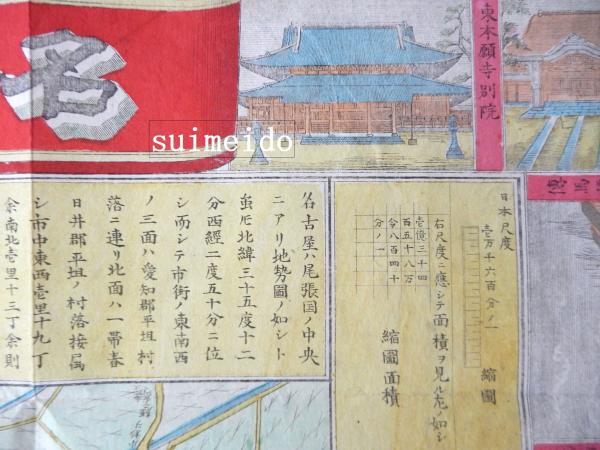 名
suimeido
東本願寺別院
日本尺度
壱万千六百分ノ一
縮圖
右尺度ニ應シテ面積ヲ見ル左ノ如シ
壱億三千四
百五十八万
分ノ一
縮圖面積
名古屋ハ尾張国ノ中央
ニアリ地勢圖ノ如シト
虽𪜈北緯三十五度十二
分西経二度五十分ニ位
シ而シテ市街ノ東南西
ノ三面ハ愛知郡平坦村
落ニ連リ北面ハ一帯春
日井郡平坦ノ村落接属
シ市中東西壱里十九丁
余南北壱里十三丁余則